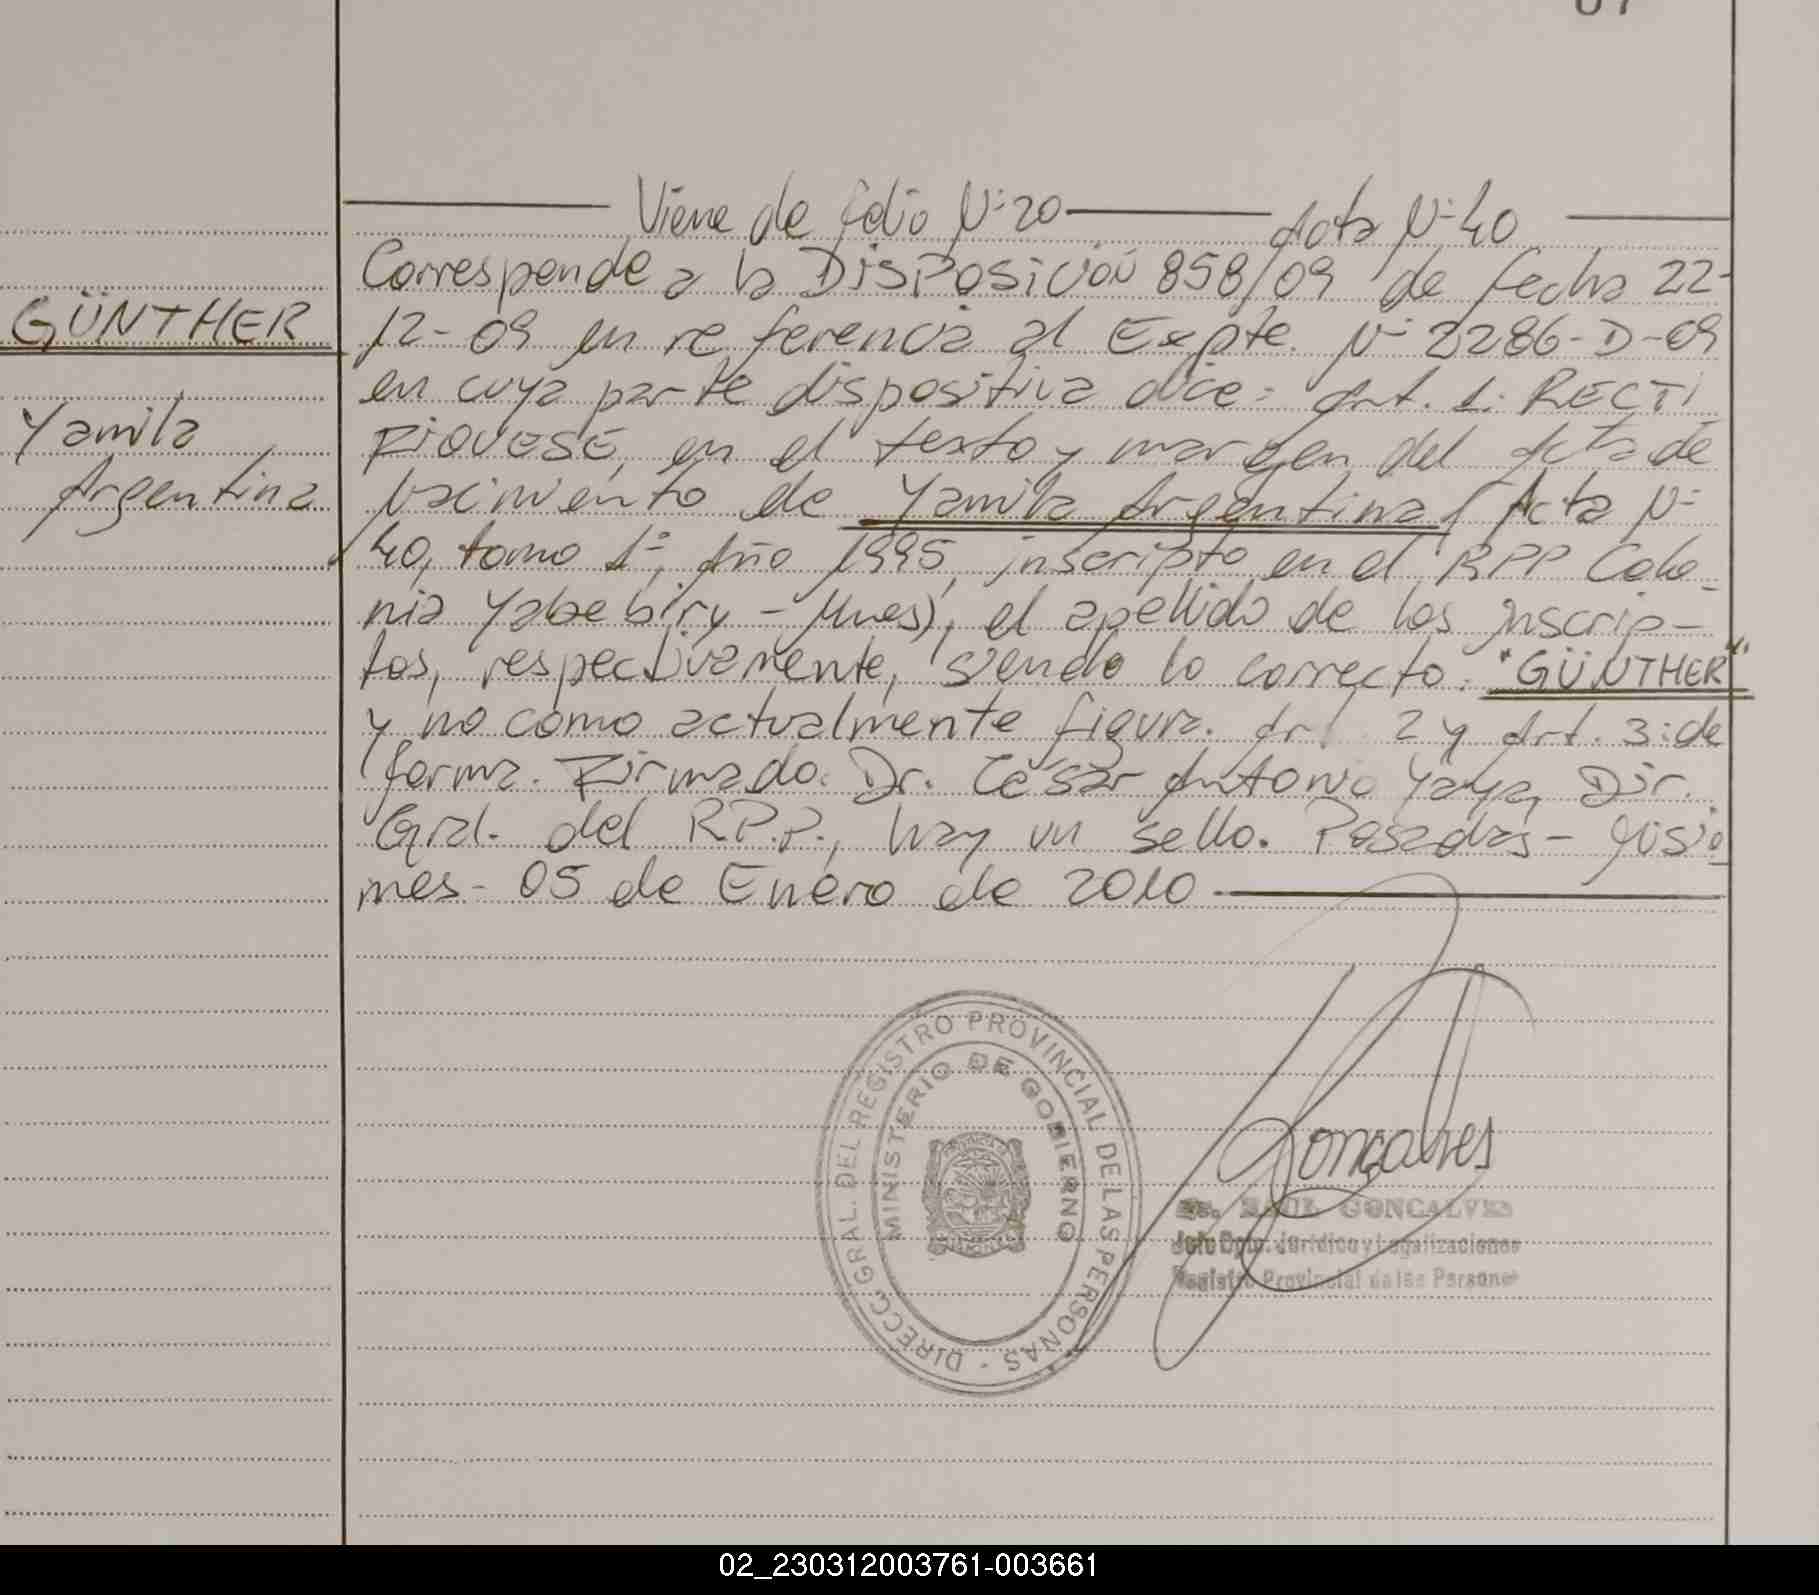 GÜNTHER
Yamila
Argentina
Viene de folio Nº 20 Acta Nº 40
Corresponde a la DISPOSICIÓN 858/09 de fecha 22-
12-09 en referencia al Expte. Nº 2286-D-09
en cuya parte dispositiva dice: Art. 1: RECTI
FIQUESE, en el texto y margen del Acta de
Nacimiento de Yamila Argentina (Acta Nº
40, tomo 1º, Año 1995, inscripto en el RPP Colo-
nia Yabebiry - Mnes), el apellido de los inscrip-
tos, respectivamente, siendo lo correcto: "GÜNTHER"
y no como actualmente figura. Art. 2 y Art. 3: de
forma. Firmado: Dr. César Antonio Yaya, Dir.
Gral. del R.P.P., hay un sello. Posadas - Misio
nes - 05 de Enero de 2010
DIRECC. GRAL. DEL REGISTRO PROVINCIAL DE LAS PERSONAS -
MINISTERIO DE GOBIERNO
Gonçalves
RAUL GONCALVES
Jefe Dpto. Jurídico y Legalizaciones
Registro Provincial de las Personas
02_230312003761-003661